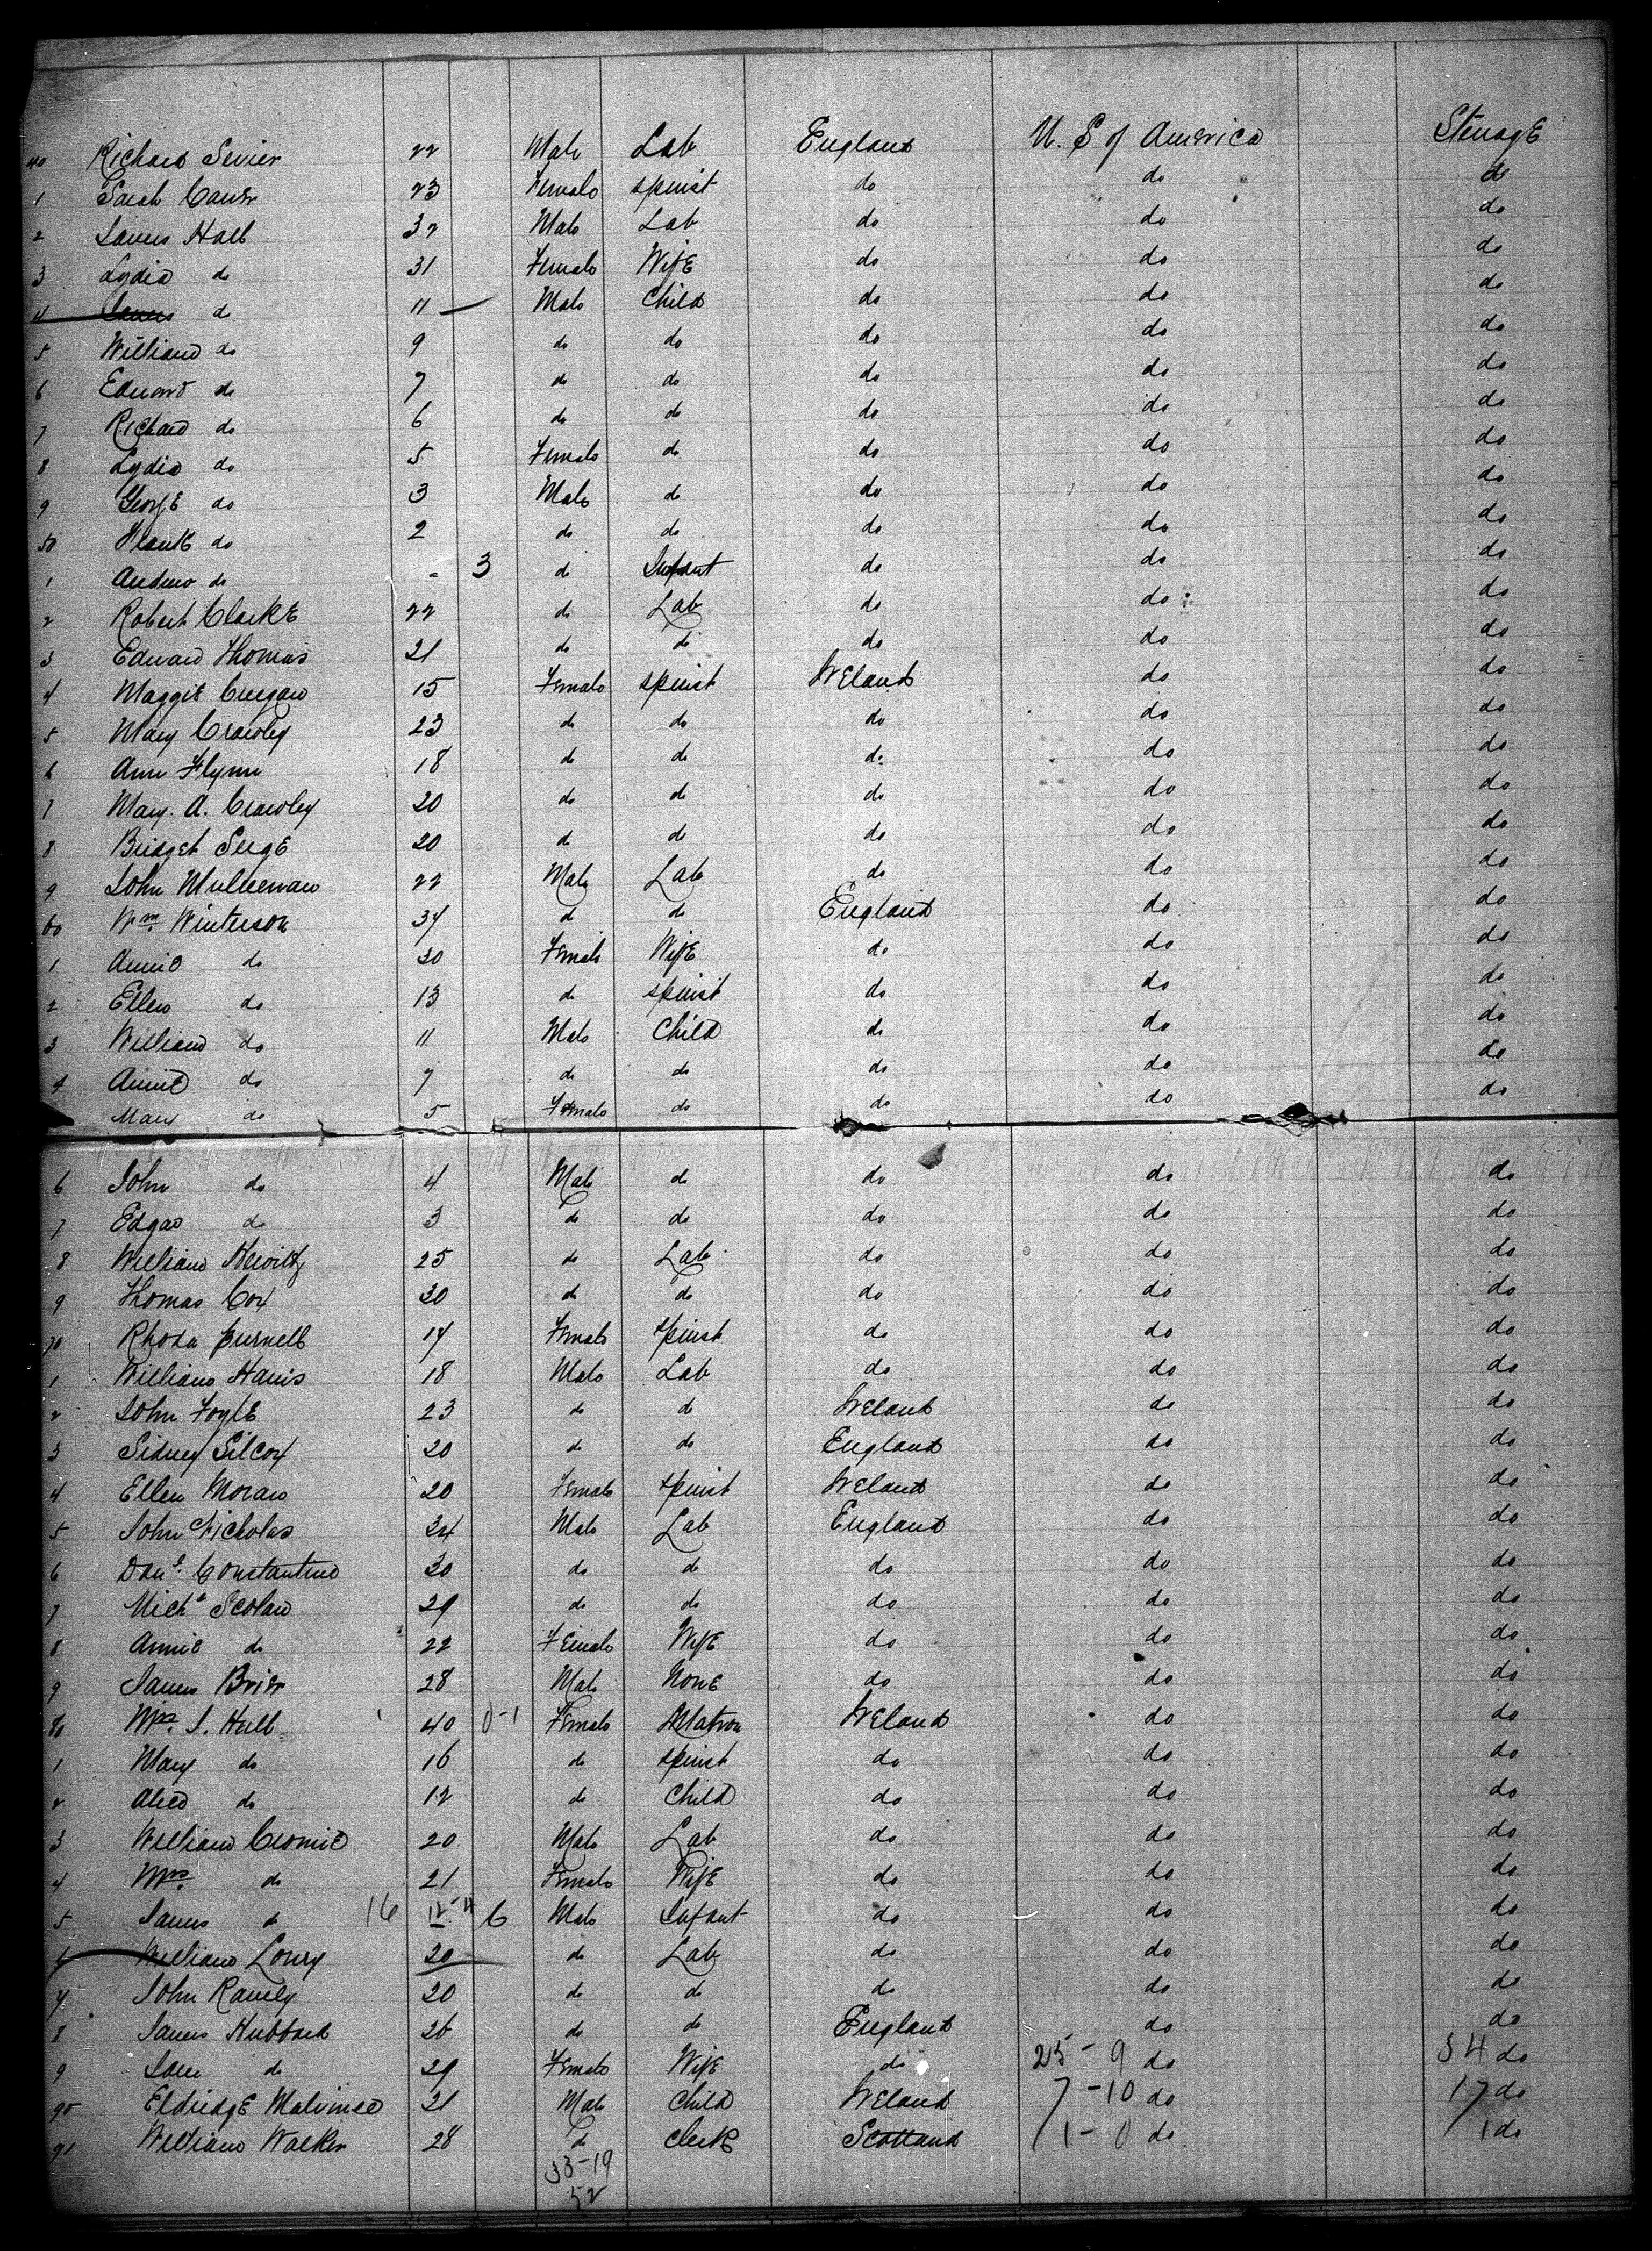 40 Richard Sevier 22 Male Lab England U. S of America Steerage
1 Sarah 23 Female spinst do do do
2 James Hall 32 Male Lab do do do
3 Lydia do 31 Female Wife do do do
4 James do 11 Male Child do do do
5 William do 9 do do do do do
6 Edward do 7 do do do do do
7 Richard do 6 do do do do do
8 Lydia do 5 Female do do do do
9 George do 3 Male do do do do
50 Frank do 2 do do do do do
1 Andrew do - 3 do Infant do do do
2 Robert Clarke 22 do Lab do do do
3 Edward Thomas 21 do do do do do
4 Maggie 15 Female spinst Ireland do do
5 Mary Crawley 23 do do do do do
6 Ann Flynn 18 do do do do do
7 Mary. A. Crawley 20 do do do do do
8 Bridget 20 do do do do do
9 John 22 Male Lab do do do
60 Wm. Winterson 34 do do England do do
1 Annie do 30 Female Wife do do do
2 Ellen do 13 do spinst do do do
3 William do 11 Male Child do do do
4 Annie do 7 do do do do do
Mary do 5 Female do do do do
6 John do 4 Male do do do do
7 Edgar do 3 do do do do do
8 William 25 do Lab do do do
9 Thomas Cox 30 do do do do do
70 Rhoda Burnell 17 Female spinst do do do
1 William Harris 18 Male Lab do do do
2 John Foyle 23 do do Ireland do do
3 Sidney Silcox 20 do do England do do
4 Ellen Moran 20 Female spinst Ireland do do
5 John Nicholas 34 Male Lab England do do
6 Danl. Constantine 30 do do do do do
7 Michl Scolan 29 do do do do do
8 Annie do 22 Female Wife do do do
9 James Brier 28 Male None do do do
80 Mrs. J. Hull 40 0-1 Female Matron Ireland do do
1 Mary do 16 do spinst do do do
2 Alice do 12 do Child do do do
3 William Cromie 20 Male Lab do do do
4 Mrs. do 21 Female Wife do do do
5 James do 16 6 Male Infant do do do
6 William Lowry 20 do Lab do do do
7 John 20 do do do do do
8 James Hubbard 26 do do England do do
9 Jane do 29 Female Wife do 25-9 do 34 do
90 Eldridge 21 Male Child Ireland 7-10 do 17 do
91 William Walker 28 do Clerk Scotland 1-0 do 1 do
33-19
52